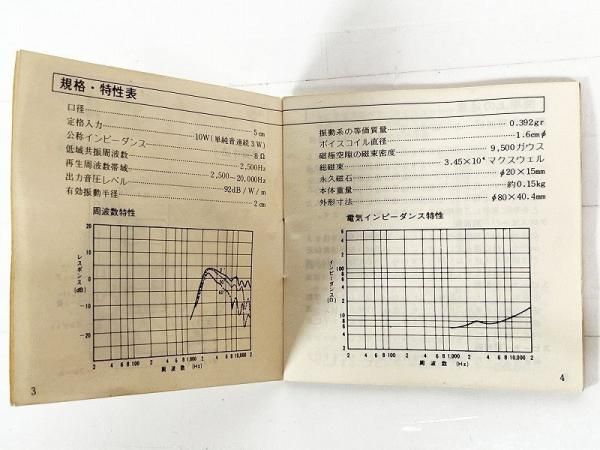 規格・特性表
口径 5cm
定格入力 10W(単純音連続3W)
公称インピーダンス 8Ω
低域共振周波数 2,500Hz
再生周波数帯域 2,500~20,000Hz
出力音圧レベル 92dB/W/m
有効振動半径 2cm
周波数特性
20
10
0
-10
-20
レスポンス(dB)
2 4 6 8 100 2 4 6 8 1,000 2 4 6 8 10,000 2
周波数 (Hz)
3
振動系の等価質量 0.392gr
ボイスコイル直径 1.6cmφ
磁極空隙の磁束密度 9,500ガウス
総磁束 3.45×10⁴マクスウェル
永久磁石 φ20×15mm
本体重量 約0.15kg
外形寸法 φ80×40.4mm
電気インピーダンス特性
6
4
2
100
8
6
4
2
10
8
6
4
インピーダンス(Ω)
2 4 6 8 100 2 4 6 8 1,000 2 4 6 8 10,000 2
周波数 (Hz)
4